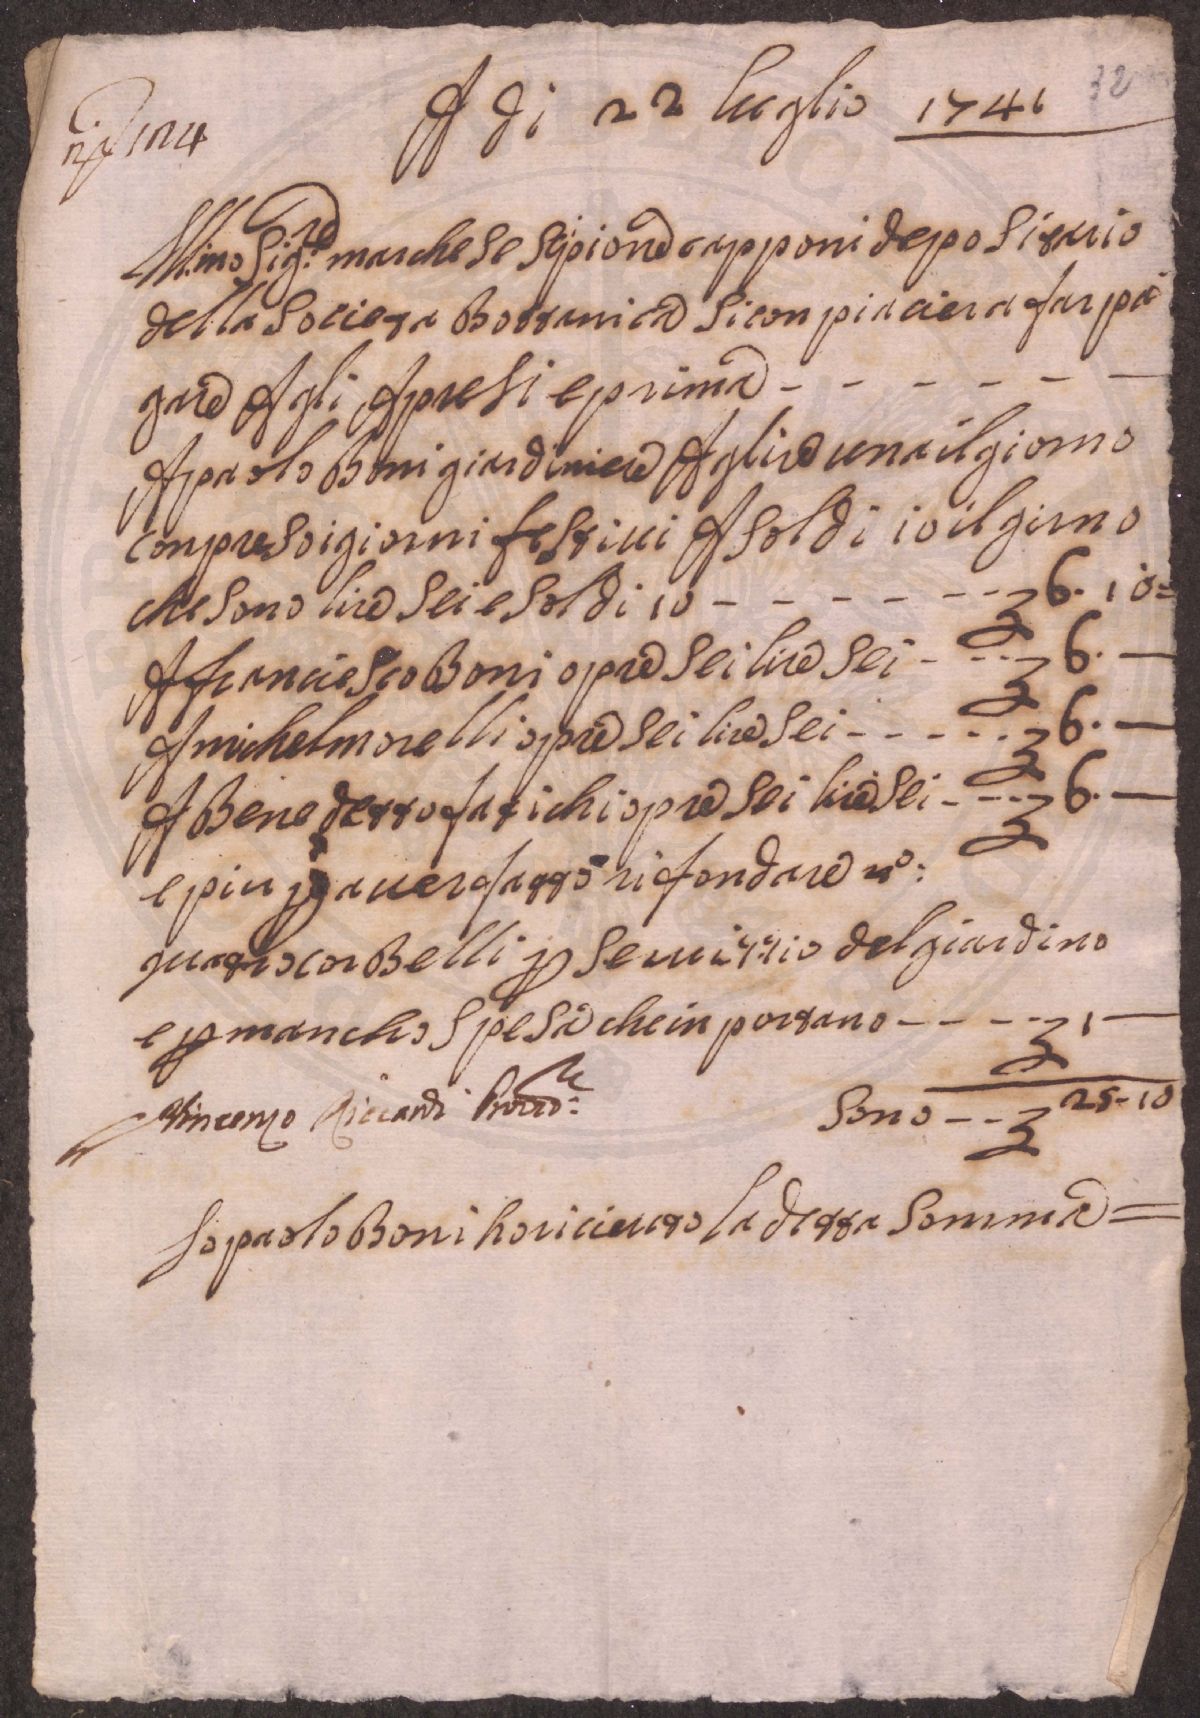 32
A di 22 luglio 1741
124
Ill.mo Sig.re marchese Scipione capponi depositario
della Societa Bottanica si conpiaciera far pa
gare Agli Apresi e prima - - - - - -
A paolo Boni giardiniere A lire una il giorno
conpreso i giorni festiui A soldi 10 il girno
che sono lire sei e soldi 10 - - - - - - - 6. 10=
A franciesco Boni opre sei lire sei - - - 6. —
A michel morelli opre sei lire sei - - - - - 6. —
A Benedetto fatichi opre sei lire sei - - - 6. —
e piu p auer fatto rifondare n°:
quatro corBelli p seruizzio del giardino
e p mancho spesa che in portano - - - - 1 —
Vincenzo Riccardi
Sono - - 25-10
Io paolo Boni ho riceuto la detta Somma =